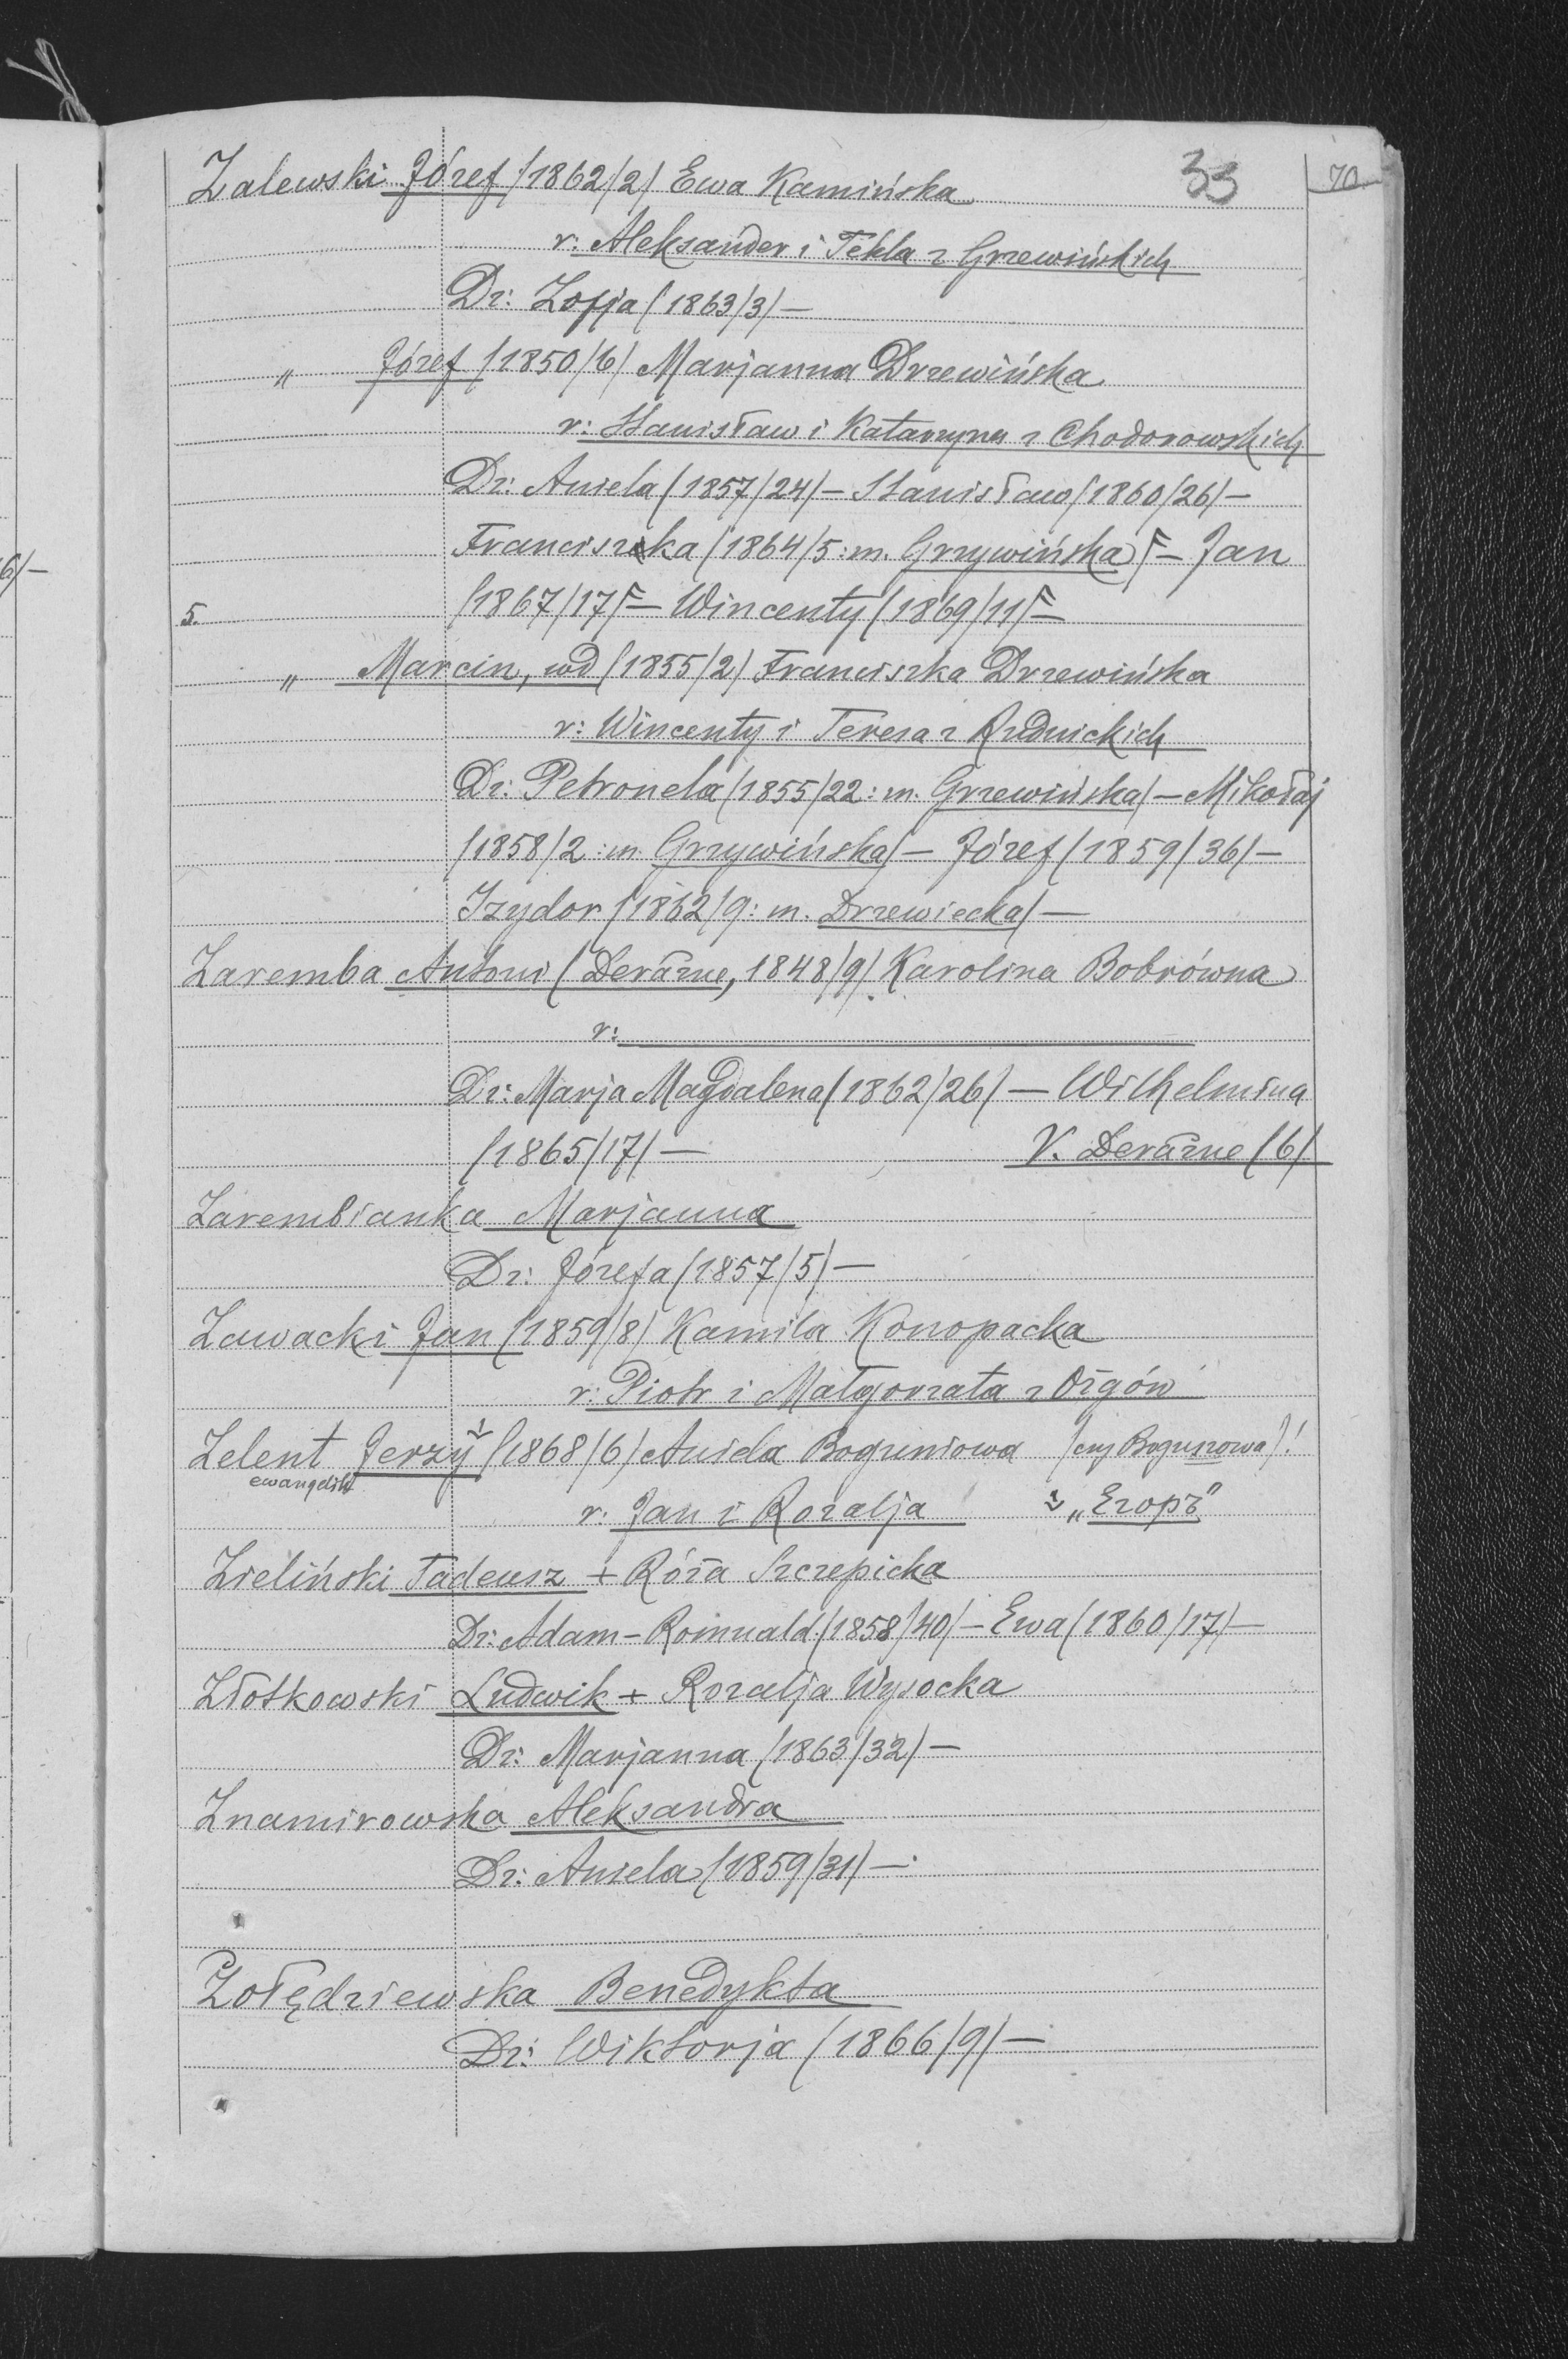 33 70
Zalewski Józef /1862/2/ Ewa Kamińska
r: Aleksander i Tekla z Grzewińskich
Dz: Zofja /1863/3/ —
„ Józef /1850/6/ Marjanna Drzewińska
r: Stanisław i Katarzyna z Chodorowskich
Dz: Aniela /1857/24/ — Stanisław /1860/26/ —
Franciszka /1864/5: m. Grzywińska/ — Jan
5. /1867/17/ — Wincenty /1869/11/ —
„ Marcin, wd /1855/2/ Franciszka Drzewińska
r: Wincenty i Teresa z Rudnickich
Dz: Petronela /1855/22: m. Grzewińska/ — Mikołaj
/1858/2: m. Grzywińska/ — Józef /1859/36/ —
Izydor /1862/9: m. Drzewiecka/ —
Zaremba Antoni /Deraźne, 1848/9/ Karolina Bobrówna
r:
Dz: Marja Magdalena /1862/26/ — Wilhelmina
/1865/17/ — V. Deraźne /6/
Zarembianka Marjanna
Dz: Józefa /1857/5/ —
Zawacki Jan /1859/8/ Kamila Konopacka
r: Piotr i Małgorzata z Ożgów
Zelent Jerzy /1868/6/ Aniela Boguniowa /czy Boguszowa/!
ewangelik
r: Jan i Rozalja „Егоръ"
Zieliński Tadeusz + Róża Szczepicka
Dz: Adam - Romuald /1858/40/ — Ewa /1860/17/ —
Złotkowski Ludwik + Rozalja Wysocka
Dz: Marjanna /1863/32/ —
Znamirowska Aleksandra
Dz: Aniela /1859/31/ —
Żołędziewska Benedykta
Dz: Wiktorja /1866/9/ —
6/ —